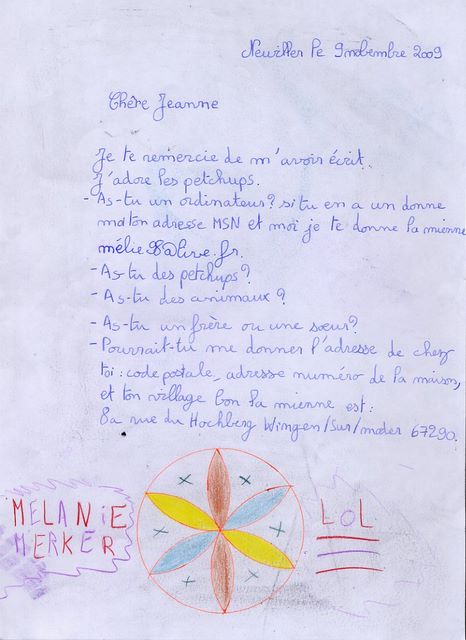 Neuviller Le 9 novembre 2009
Chère Jeanne
Je te remercie de m'avoir écrit.
J'adore les petchups.
- As-tu un ordinateur? si tu en a un donne
moi ton adresse MSN et moi je te donne la mienne
mélie @live.fr.
- As-tu des petchups?
- As-tu des animaux?
- As-tu un frère ou une sœur?
- Pourrait-tu me donner l'adresse de chez
toi : code postale, adresse numéro de la maison,
et ton village bon la mienne est :
8a rue du Hochberg Wingen/Sur/moder 67290.
MELANiE
MERKER
LOL